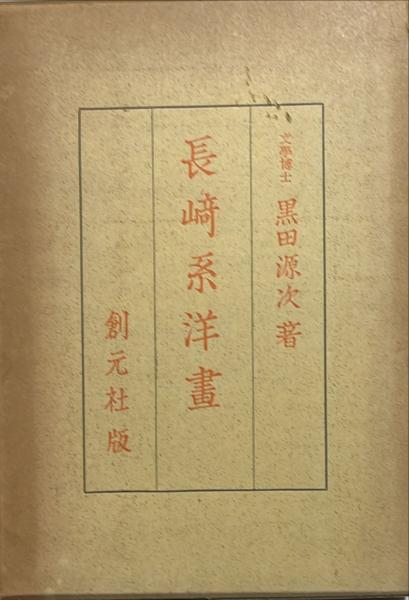 文學博士 黒田源次著
長崎系洋畫
創元社版